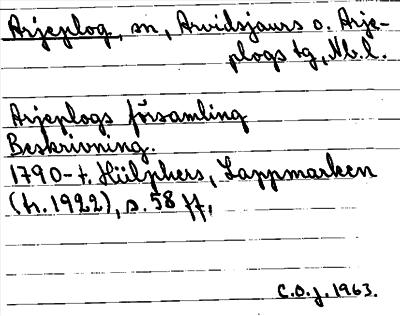 Arjeplog, sn, Arvidsjaurs o. Arje-
plogs tg, Nb.l.
Arjeplogs församling
Beskrivning.
1790-t. Hülphers, Lappmarken
(tr. 1922), s. 58 ff,
C.O.J. 1963.